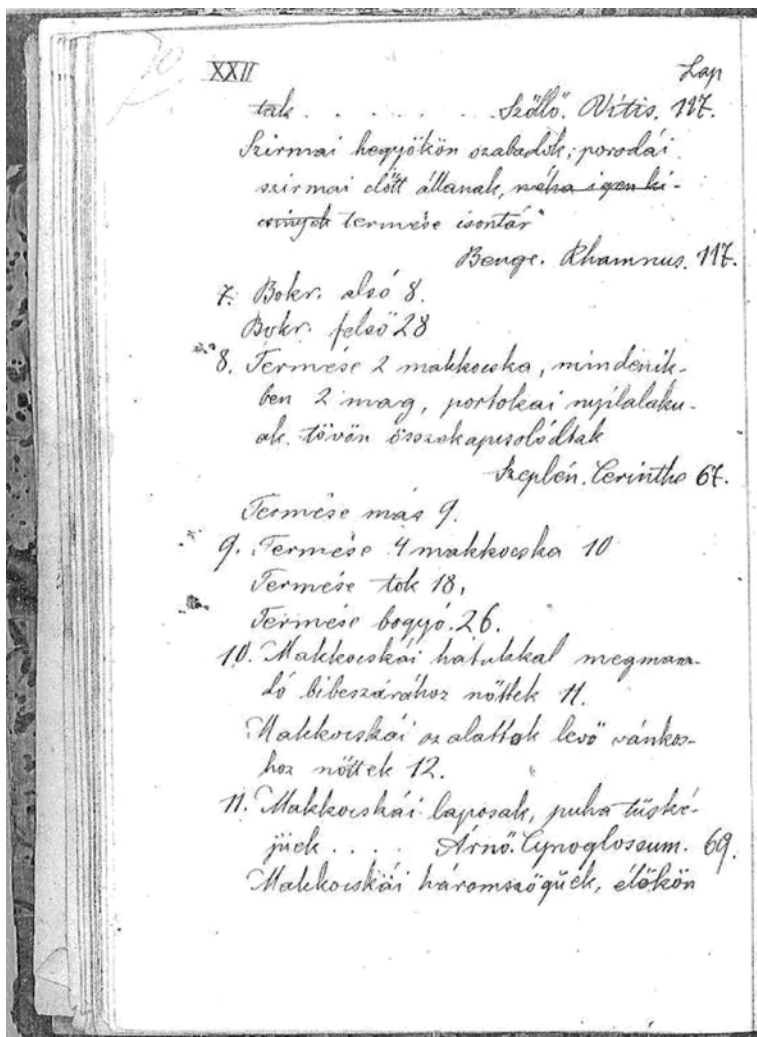 XXII Lap
tak . . . . . . Szőllő. Vitis. 117.
Szirmai hegyökön szabadok; porodái
szirmai előtt állanak, néha igen ki-
csinyek termése csontár
Benge. Rhamnus. 117.
7. Bokr. alsó 8.
Bokr. felső 28
8. Termése 2 makkocska, mindenik-
ben 2 mag, portokai nyilalaku-
ak tövön összekapcsolódtak
Szeplén. Cerinthe 67.
Termése más 9.
9. Termése 4 makkocska 10
Termése tok 18,
Termése bogyó. 26.
10. Makkocskái hátukkal megmara-
dó bibeszárához nőttek 11.
Makkocskái az alattok levő vánkos-
hoz nőttek 12.
11. Makkocskái laposak, puha tüské-
jüek . . . . Árnő. Cynoglossum. 69.
Makkocskái háromszögüek, élökön